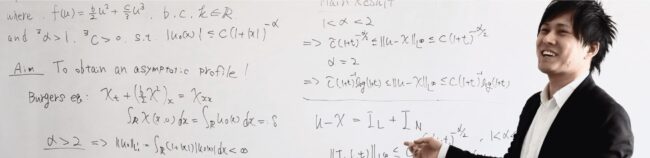 where f(u) = b/2 u² + c/3 u³, b, c, k ∈ ℝ
and ∃α > 1, ∃C > 0, s.t. |u₀(x)| ≤ C(1+|x|)^{-α}
Aim To obtain an asymptotic profile!
Burgers eq: χ_t + (b/2 χ²)_x = χ_xx
∫_ℝ χ(x,0) dx = ∫_ℝ u₀(x) dx =: δ
α > 2 ⇒ ∫_ℝ (1+|x|)|u₀(x)| dx < ∞
Main Result
1 < α < 2
⇒ C̃(1+t)^{-α/2} ≤ ||u-χ||_{L^∞} ≤ C(1+t)^{-α/2}
α = 2
⇒ C̃(1+t)^{-1} log(1+t) ≤ ||u-χ||_{L^∞} ≤ C(1+t)^{-1} log(1+t)
u - χ = I_L + I_N
(1+t)^{-α/2}, 1 < α